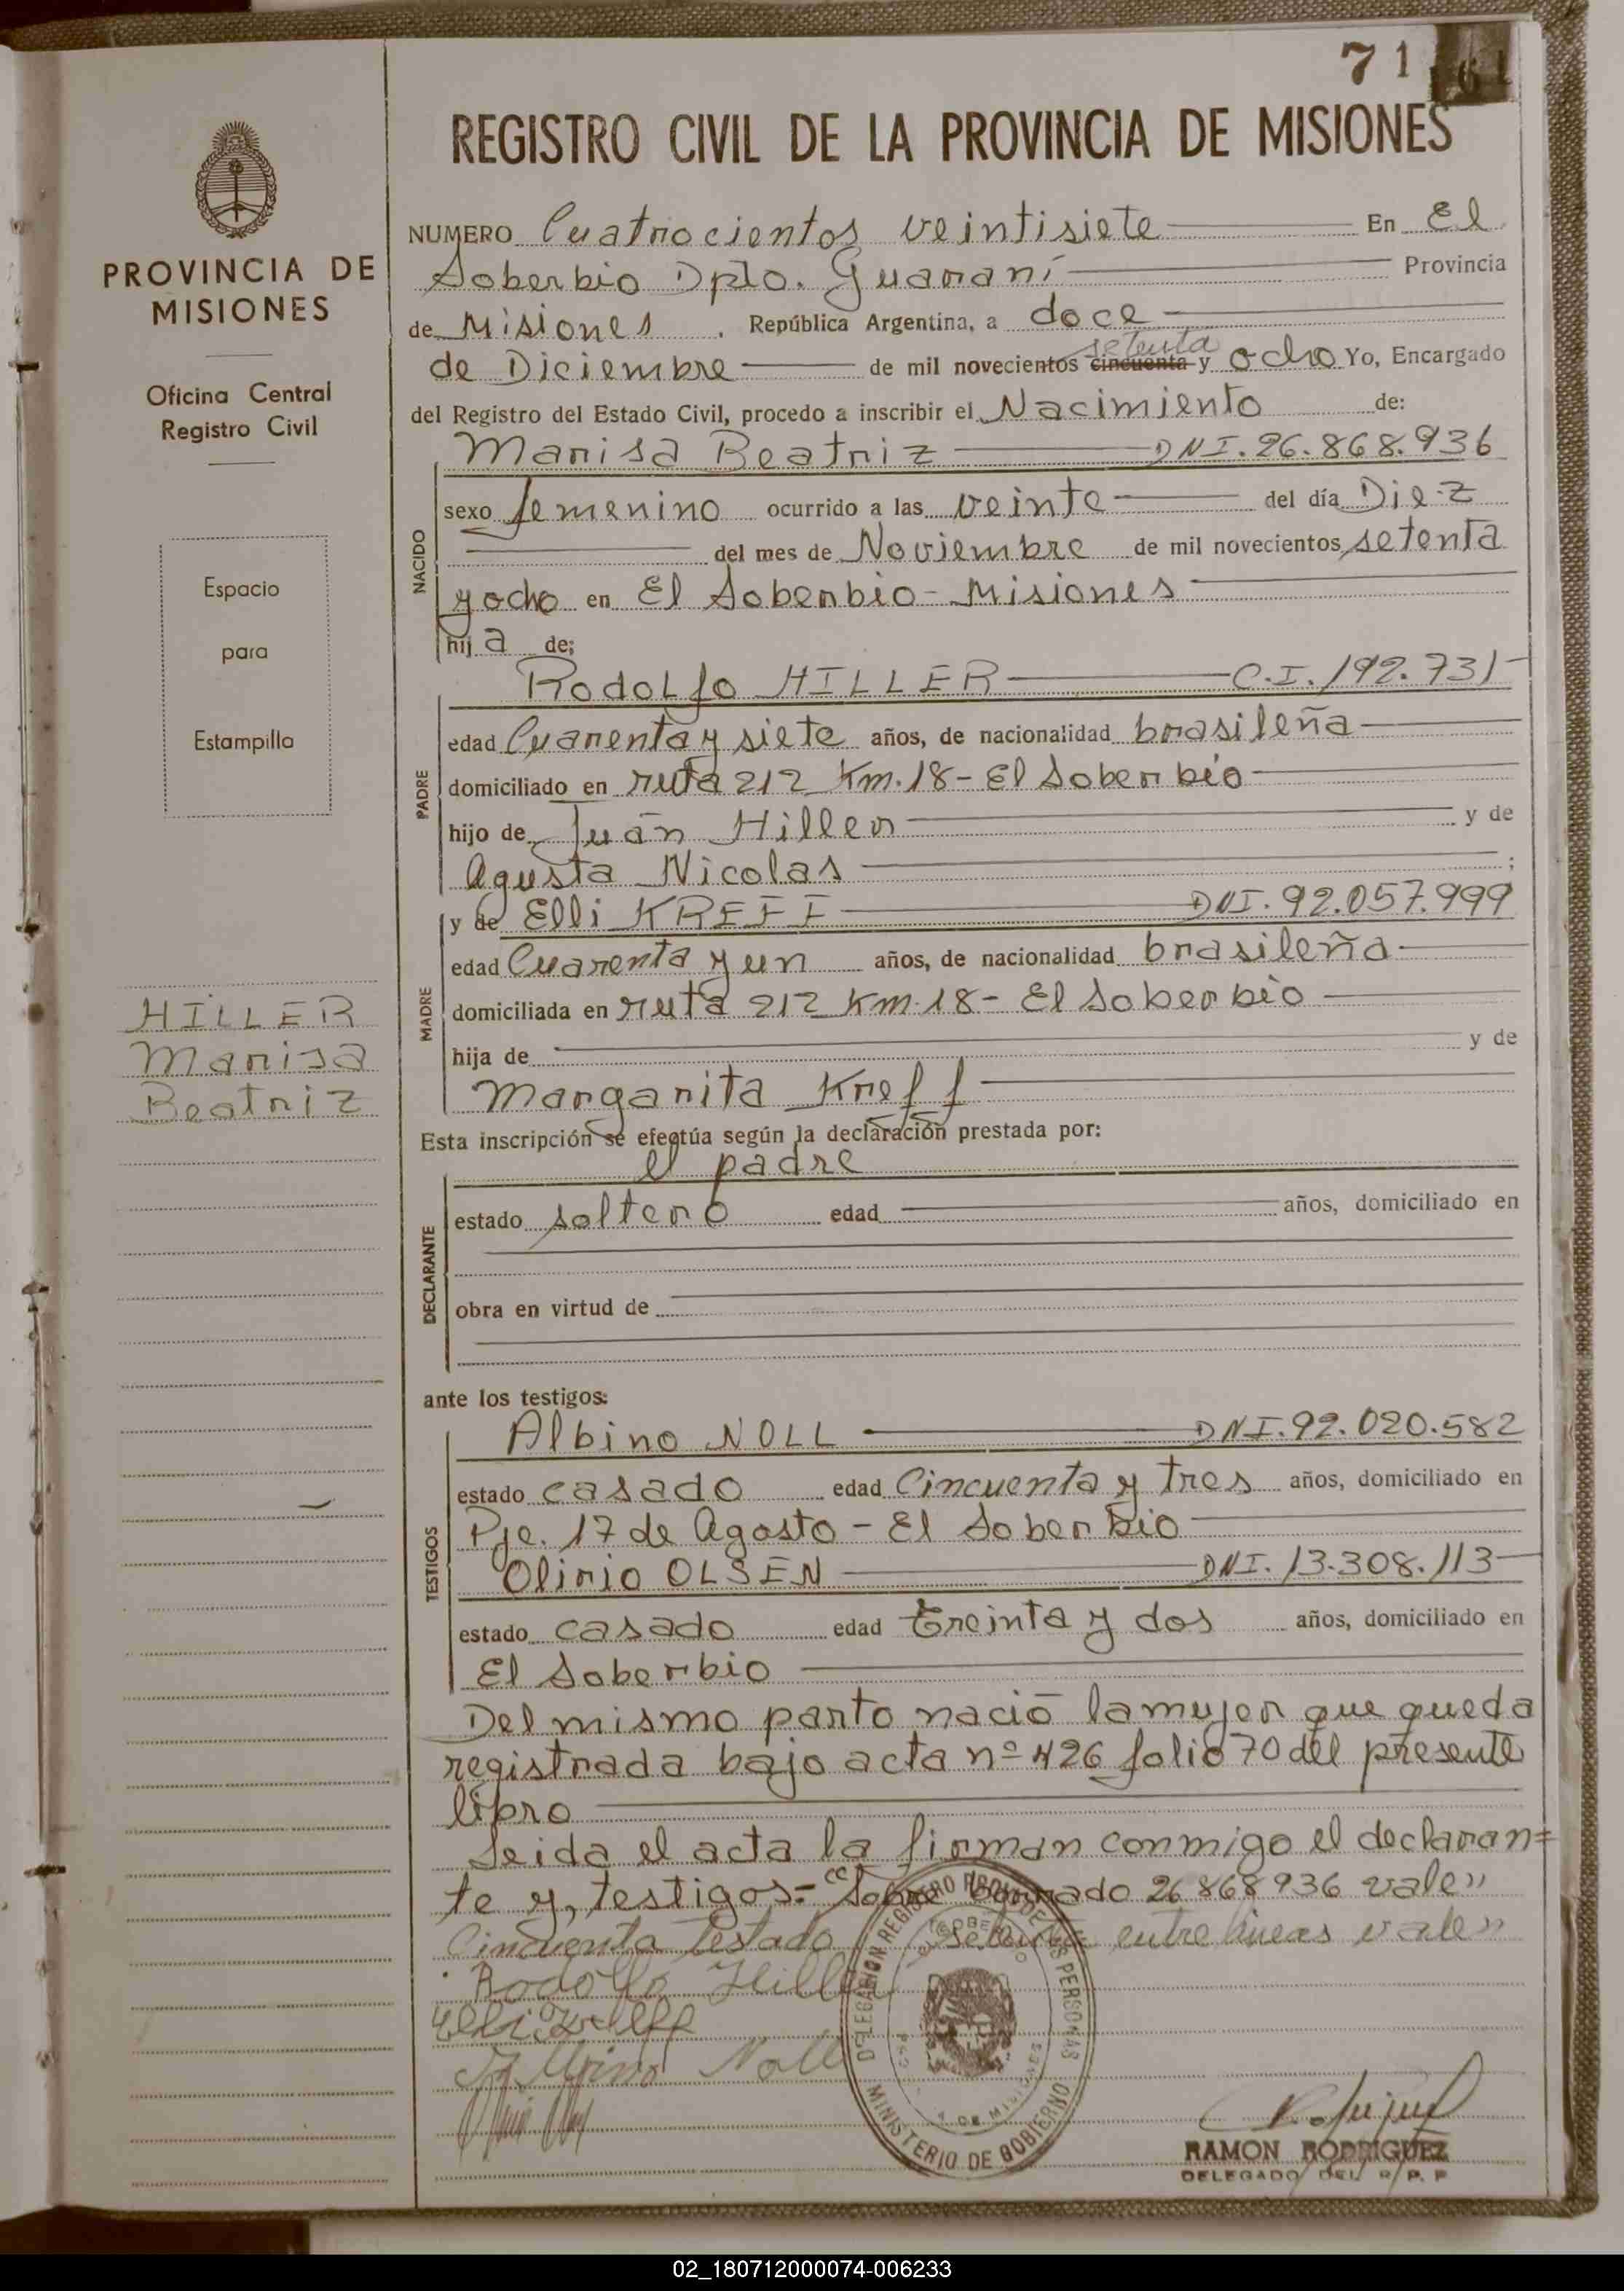 71
REGISTRO CIVIL DE LA PROVINCIA DE MISIONES
PROVINCIA DE
MISIONES
Oficina Central
Registro Civil
Espacio
para
Estampilla
HILLER
Marisa
Beatriz
NUMERO Cuatrocientos veintisiete En El
Soberbio Dpto. Guaraní Provincia
de Misiones . República Argentina, a doce
setenta
de Diciembre de mil novecientos cincuenta y ocho Yo, Encargado
del Registro del Estado Civil, procedo a inscribir el Nacimiento de:
Marisa Beatriz DNI. 26.868.936
NACIDO
sexo femenino ocurrido a las veinte del día Diez
del mes de Noviembre de mil novecientos setenta
y ocho en El Soberbio - Misiones
hij a de;
Rodolfo HILLER C.I. 192.731
PADRE
edad Cuarenta y siete años, de nacionalidad brasileña
domiciliado en ruta 212 Km. 18 - El Soberbio
hijo de Juán Hiller y de
Agusta Nicolas ;
y de Elli KREFF DNI. 92.057.999
MADRE
edad Cuarenta y un años, de nacionalidad brasileña
domiciliada en ruta 212 Km. 18 - El Soberbio
hija de y de
Margarita Kreff
Esta inscripción se efectúa según la declaración prestada por:
el padre
DECLARANTE
estado soltero edad años, domiciliado en
obra en virtud de
ante los testigos:
Albino NOLL DNI. 92.020.582
TESTIGOS
estado casado edad Cincuenta y tres años, domiciliado en
Pje. 17 de Agosto - El Soberbio
Olirio OLSEN DNI. 13.308.113
estado casado edad Treinta y dos años, domiciliado en
El Soberbio
Del mismo parto nació la mujer que queda
registrada bajo acta nº 426 folio 70 del presente
libro
Leida el acta la firman conmigo el declaran=
te y, testigos.= "Sobre borrado 26868936 vale"
Cincuenta testado "setenta entre lineas vale"
Rodolfo Hiller
Elli Kreff
Albino Noll
DELEGACION REGISTRO PROV. DE LAS PERSONAS
MINISTERIO DE GOBIERNO
RAMON RODRIGUEZ
DELEGADO DEL R. P. P.
02_180712000074-006233